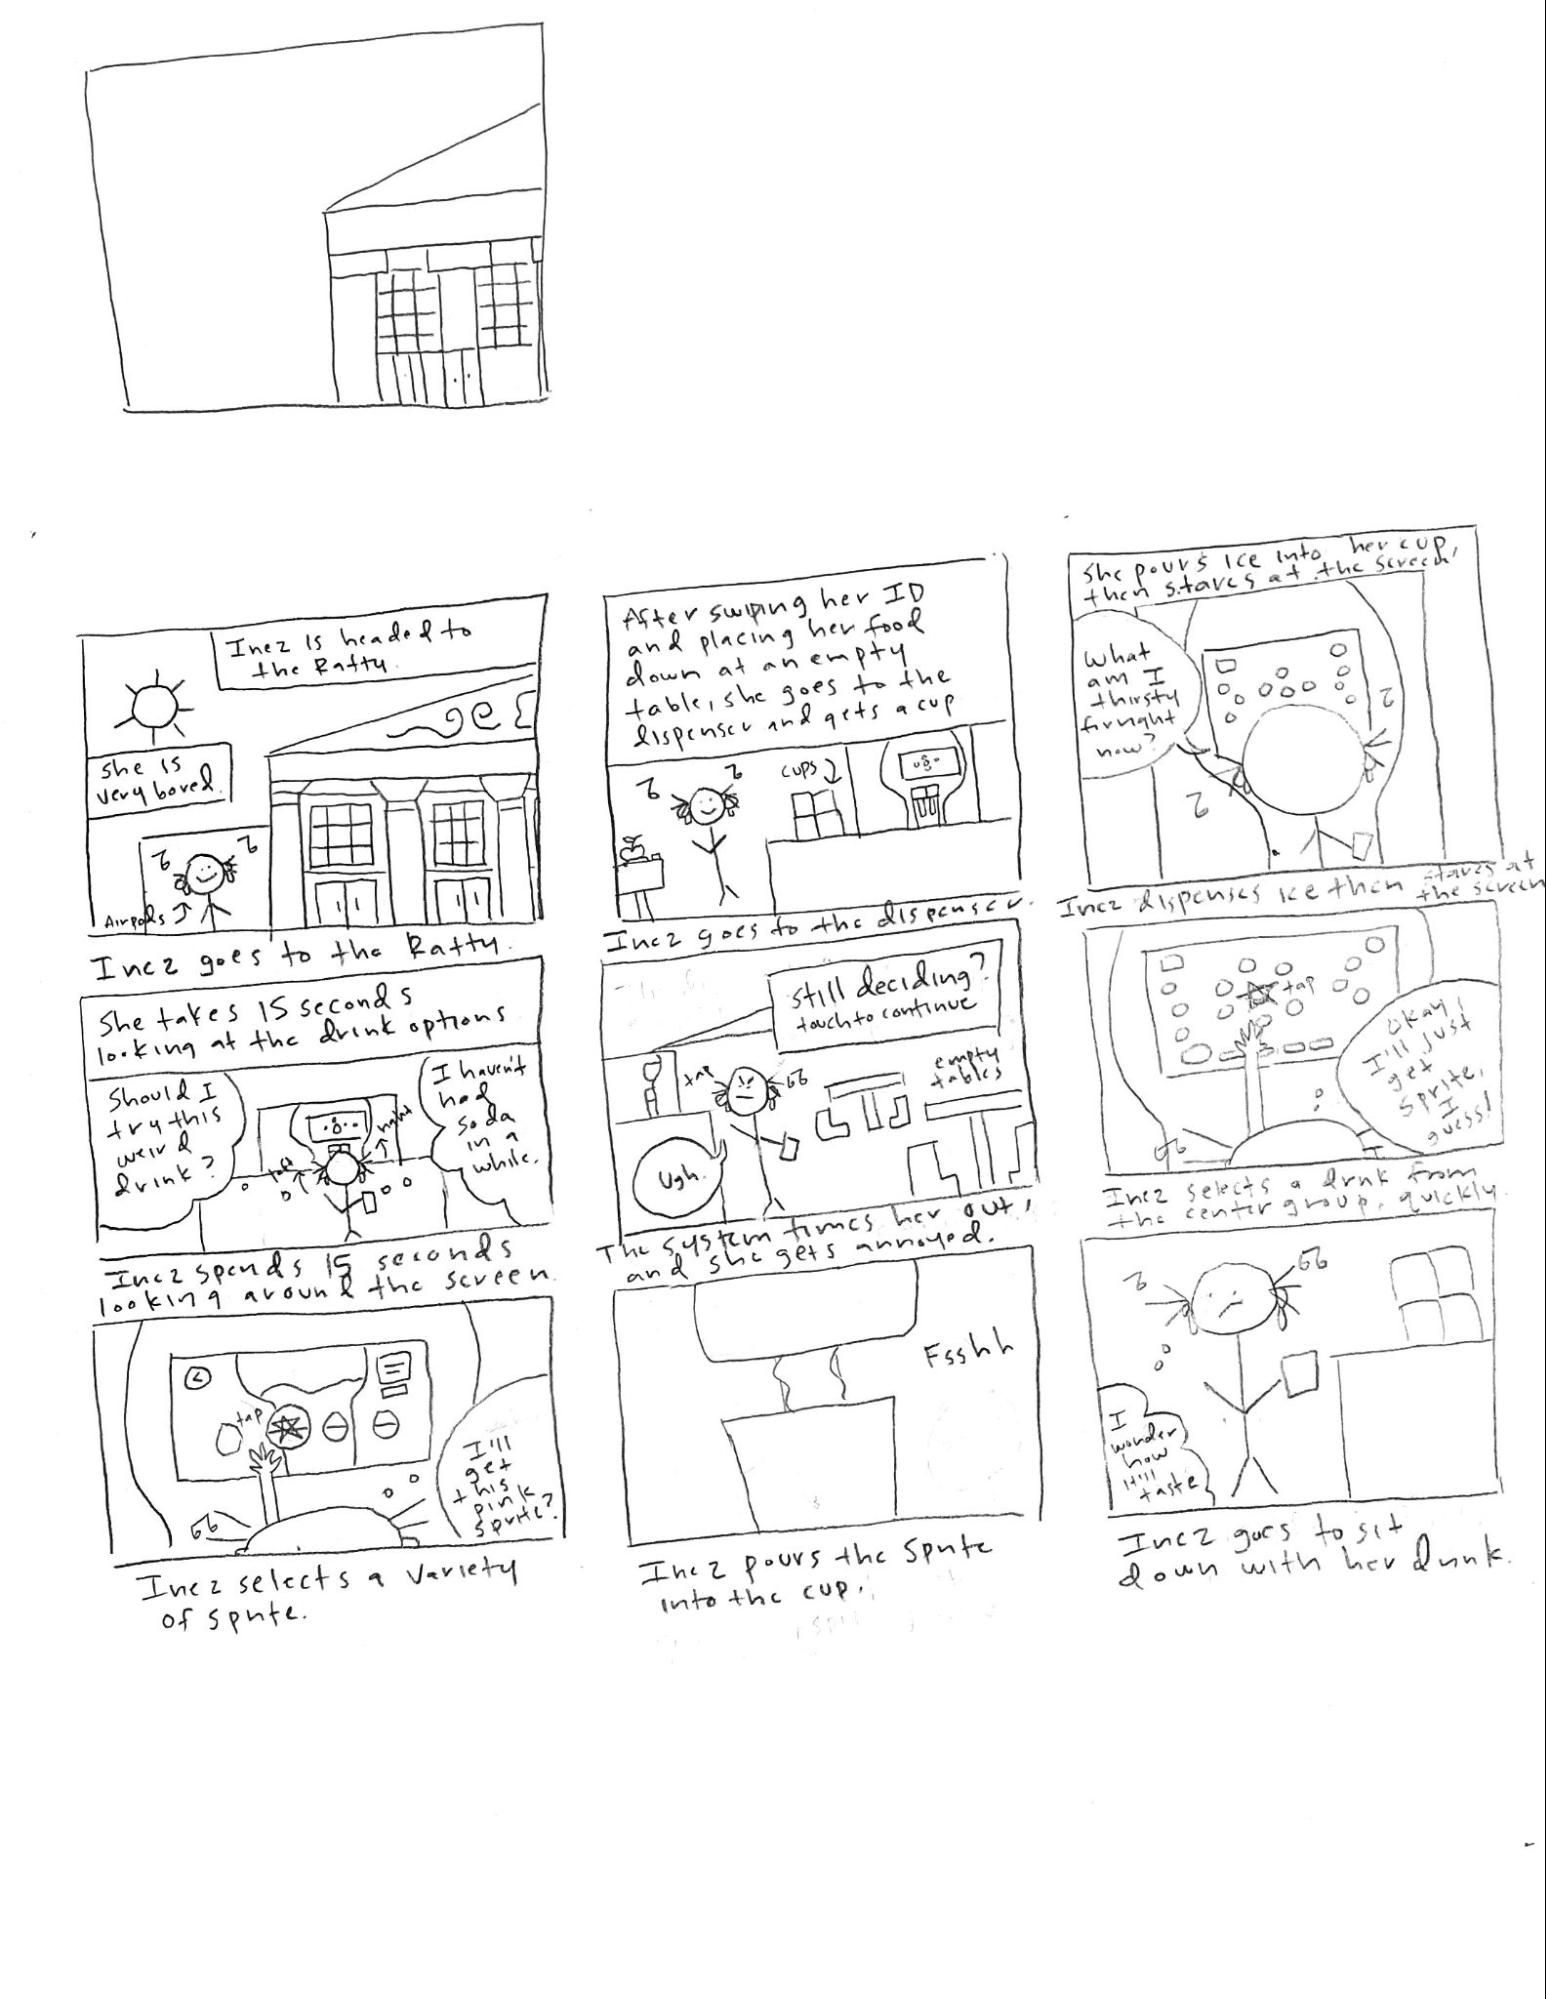 Inez is headed to
the Ratty.
She is
very bored.
Airpods
Inez goes to the Ratty.
After swiping her ID
and placing her food
down at an empty
table, she goes to the
dispenser and gets a cup
cups
Inez goes to the dispenser.
She pours ice into her cup,
then stares at the screen.
What
am I
thirsty
for right
now?
Inez dispenses ice then stares at
the screen
She takes 15 seconds
looking at the drink options
Should I
try this
weird
drink?
I haven't
had
soda
in a
while.
right
Inez spends 15 seconds
looking around the screen.
Still deciding?
touch to continue
tap
empty
tables
Ugh.
The system times her out,
and she gets annoyed.
tap
Okay,
I'll just
get
Sprite,
I
guess!
Inez selects a drink from
the center group, quickly.
tap
I'll
get
this
pink
Sprite?
Inez selects a variety
of Sprite.
Fsshh
Inez pours the Sprite
into the cup.
I
wonder
how
it'll
taste
Inez goes to sit
down with her drink.